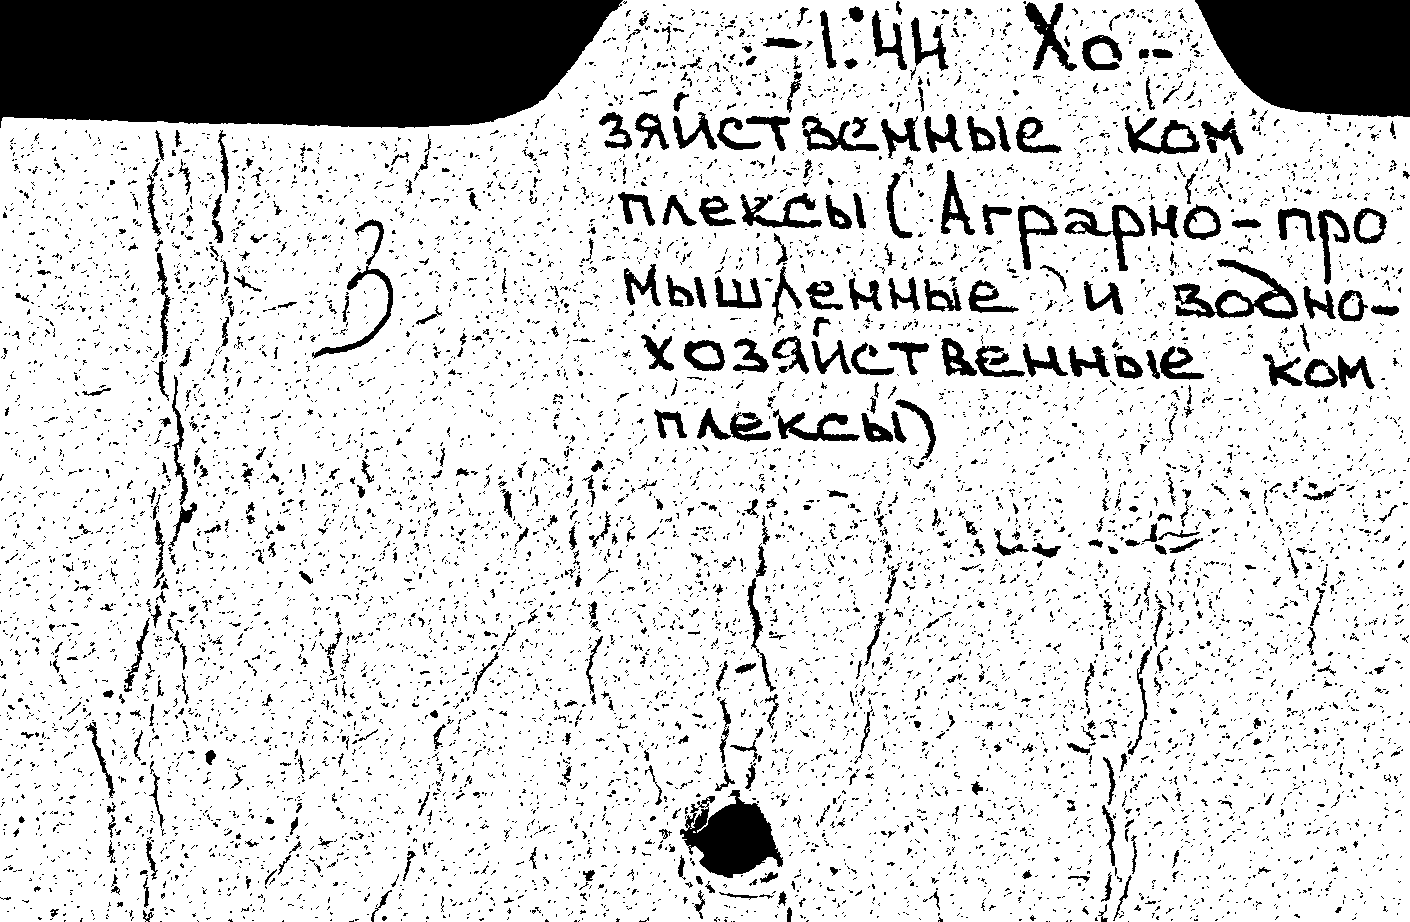 -1.44 Хо-
зяйственные ком
плексы (Аграрно-про
мышленные и водно-
хозяйственные ком
плексы)
3